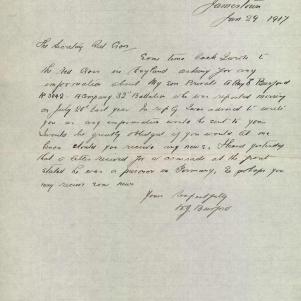 Jamestown
Jan 29 1917
The Secretary Red Cross
Some time back I wrote to
the Red Cross in England asking for any
information about my son Private A Roy E Burford
No 3002 A Company 32nd Battalion who was reported missing
on July 20th last year. In reply I was advised to write
you as any information would be sent to you
I would be greatly obliged if you would let me
know should you receive any news. I heard yesterday
that a letter received for a comrade at the front
stated he was a prisoner in Germany, So perhaps you
may receive some news
Yours respectfully
Burford